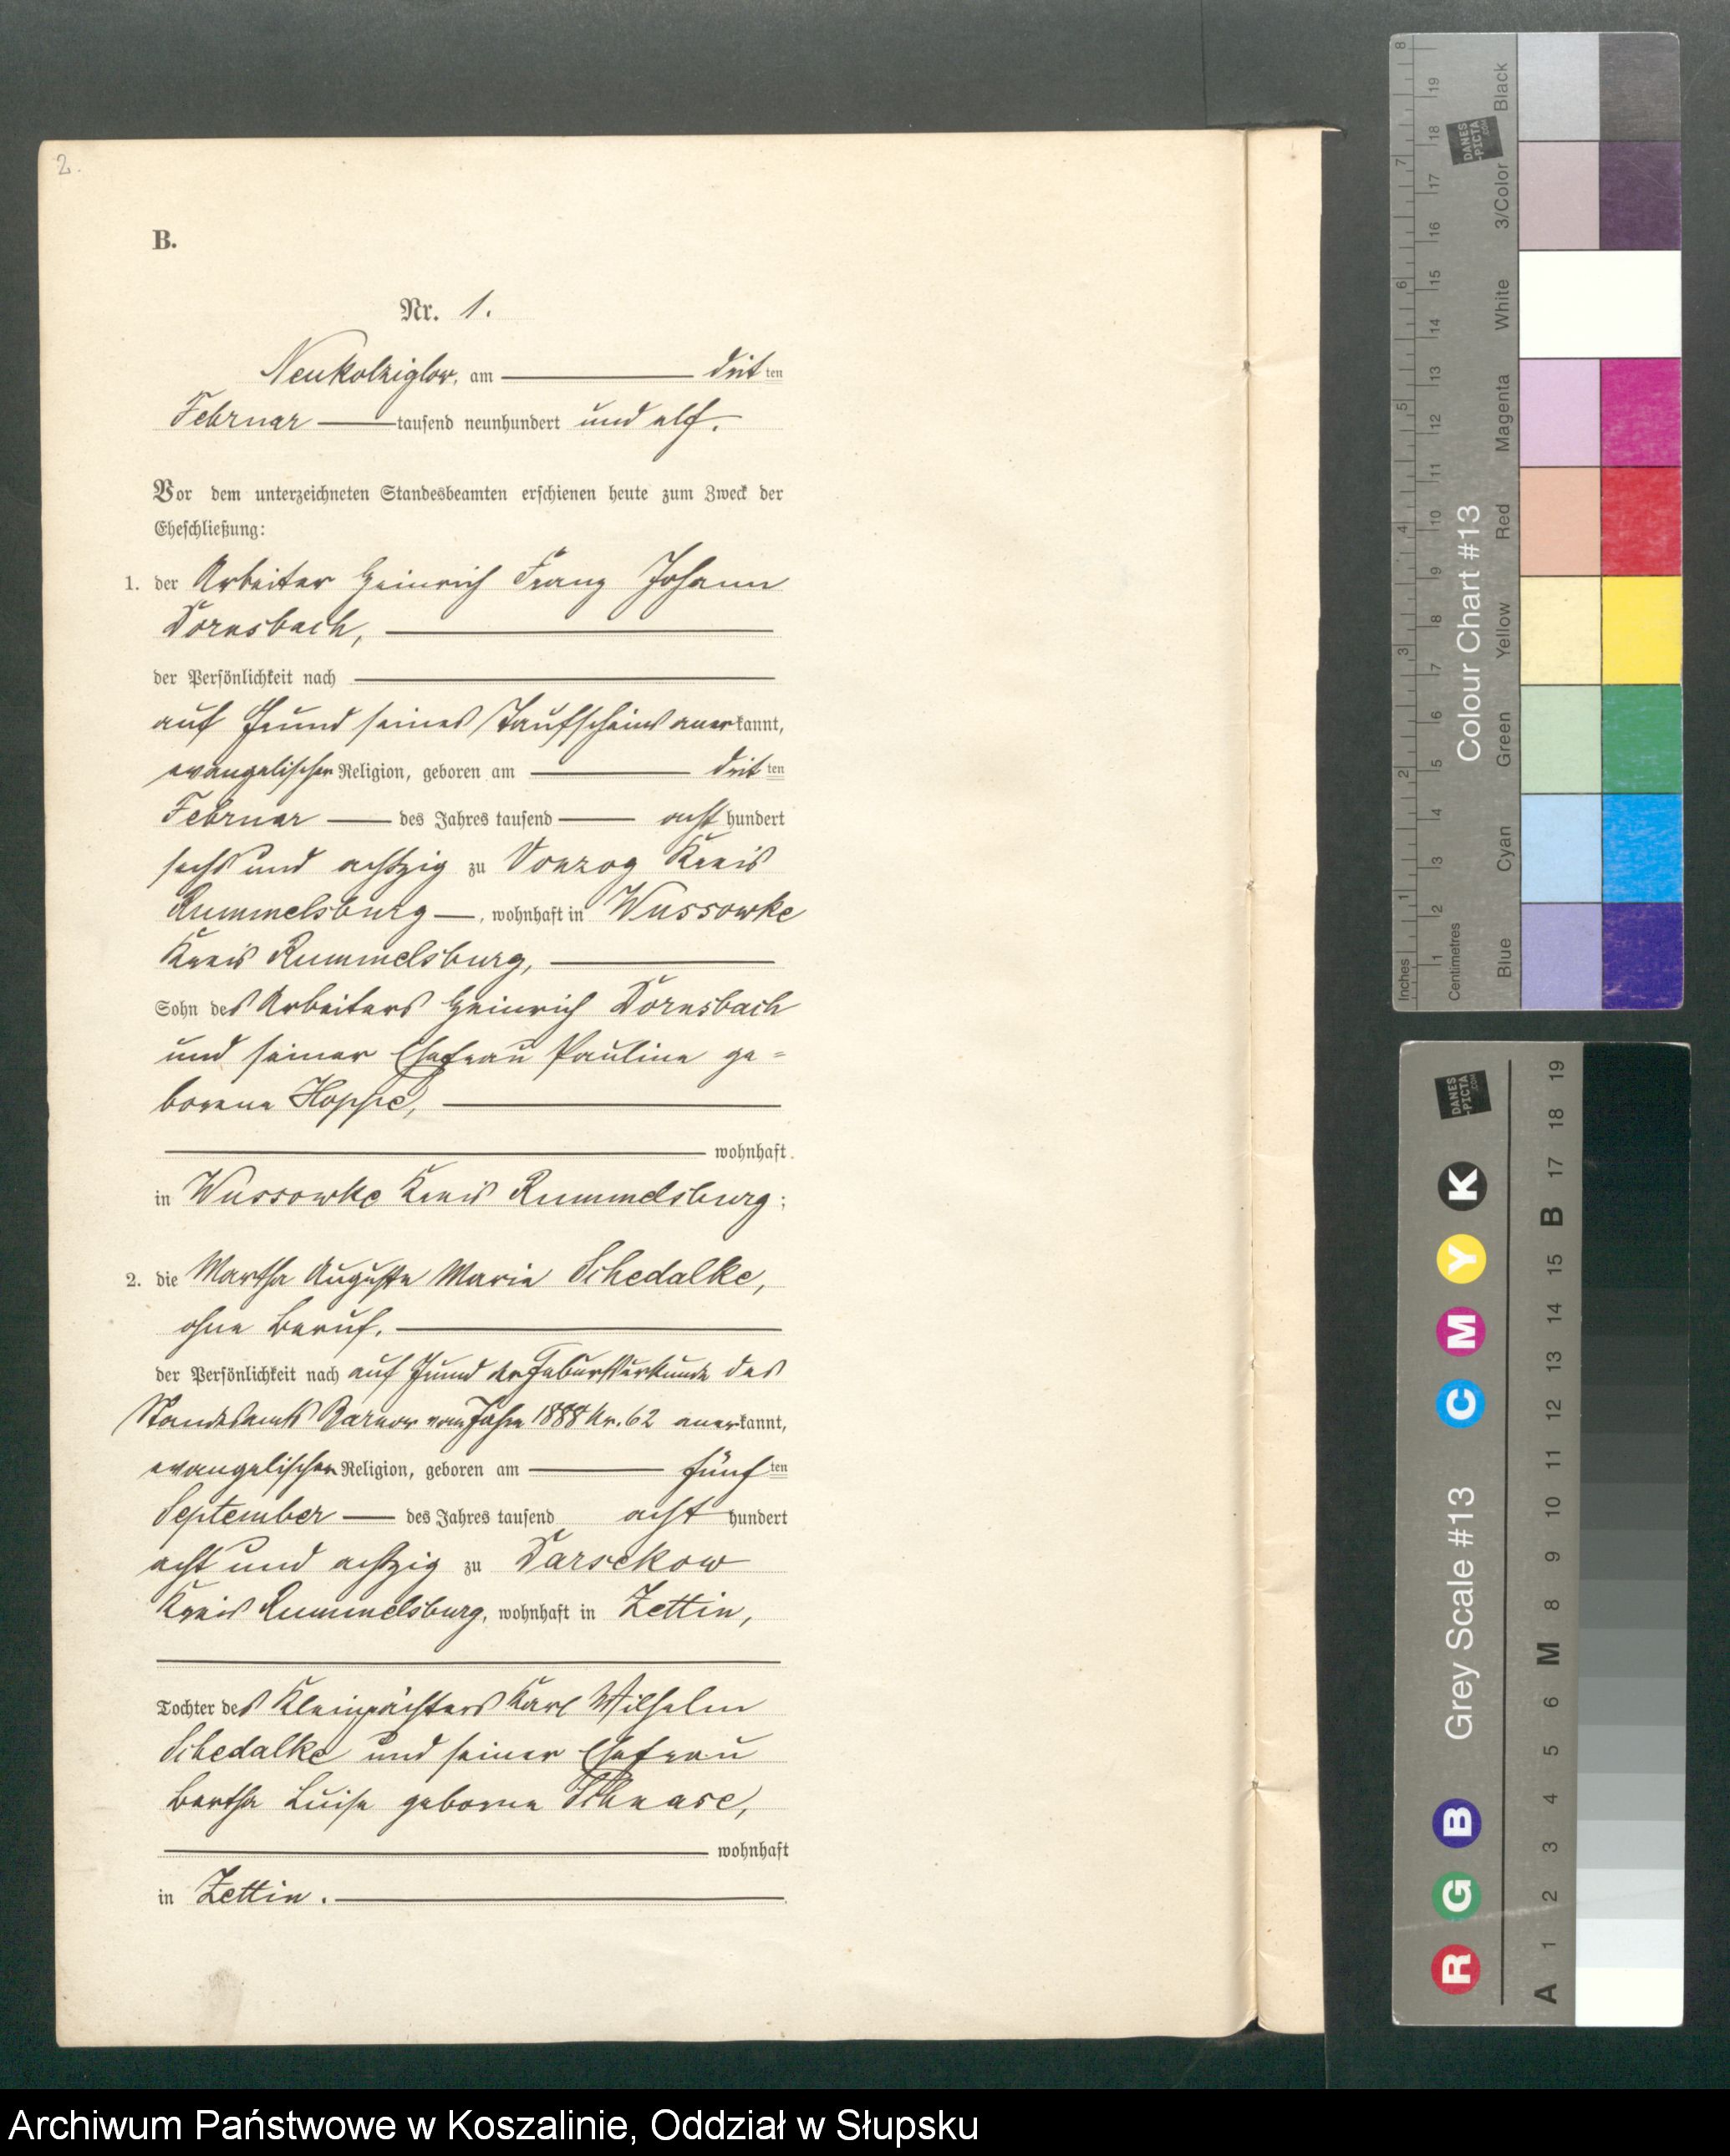 2.
B.
Nr. 1.
Neukolziglow, am dritten
Februar tausend neunhundert und elf.
Vor dem unterzeichneten Standesbeamten erschienen heute zum Zweck der
Eheschließung:
1. der Arbeiter Heinrich Franz Johann
Dornsbach,
der Persönlichkeit nach
auf Grund seines Taufscheins anerkannt,
evangelischer Religion, geboren am dritten
Februar des Jahres tausend acht hundert
sechs und achtzig zu Vonzog Kreis
Rummelsburg, wohnhaft in Wussowke
Kreis Rummelsburg,
Sohn des Arbeiters Heinrich Dornsbach
und seiner Ehefrau Pauline ge=
borene Hoppe,
wohnhaft
in Wussowke Kreis Rummelsburg;
2. die Martha Auguste Marie Schedalke,
ohne Beruf,
der Persönlichkeit nach auf Grund der Geburtsurkunde des
Standesamts Barnow vom Jahre 1888 Nr. 62 anerkannt,
evangelischer Religion, geboren am fünften
September des Jahres tausend acht hundert
acht und achtzig zu Darsekow
Kreis Rummelsburg, wohnhaft in Zettin,
Tochter des Kleinpächters Karl Wilhelm
Schedalke und seiner Ehefrau
Bertha Luise geborne Schnase,
wohnhaft
in Zettin.
Colour Chart #13
Inches
Centimetres
Blue Cyan Green Yellow Red Magenta White 3/Color Black
1 2 3 4 5 6 7 8
1 2 3 4 5 6 7 8 9 10 11 12 13 14 15 16 17 18 19
DANES
-PICTA
.COM
Grey Scale #13
R G B C M Y K
A 1 2 3 4 5 6 M 8 9 10 11 12 13 14 15 B 17 18 19
DANES
-PICTA
.COM
Archiwum Państwowe w Koszalinie, Oddział w Słupsku